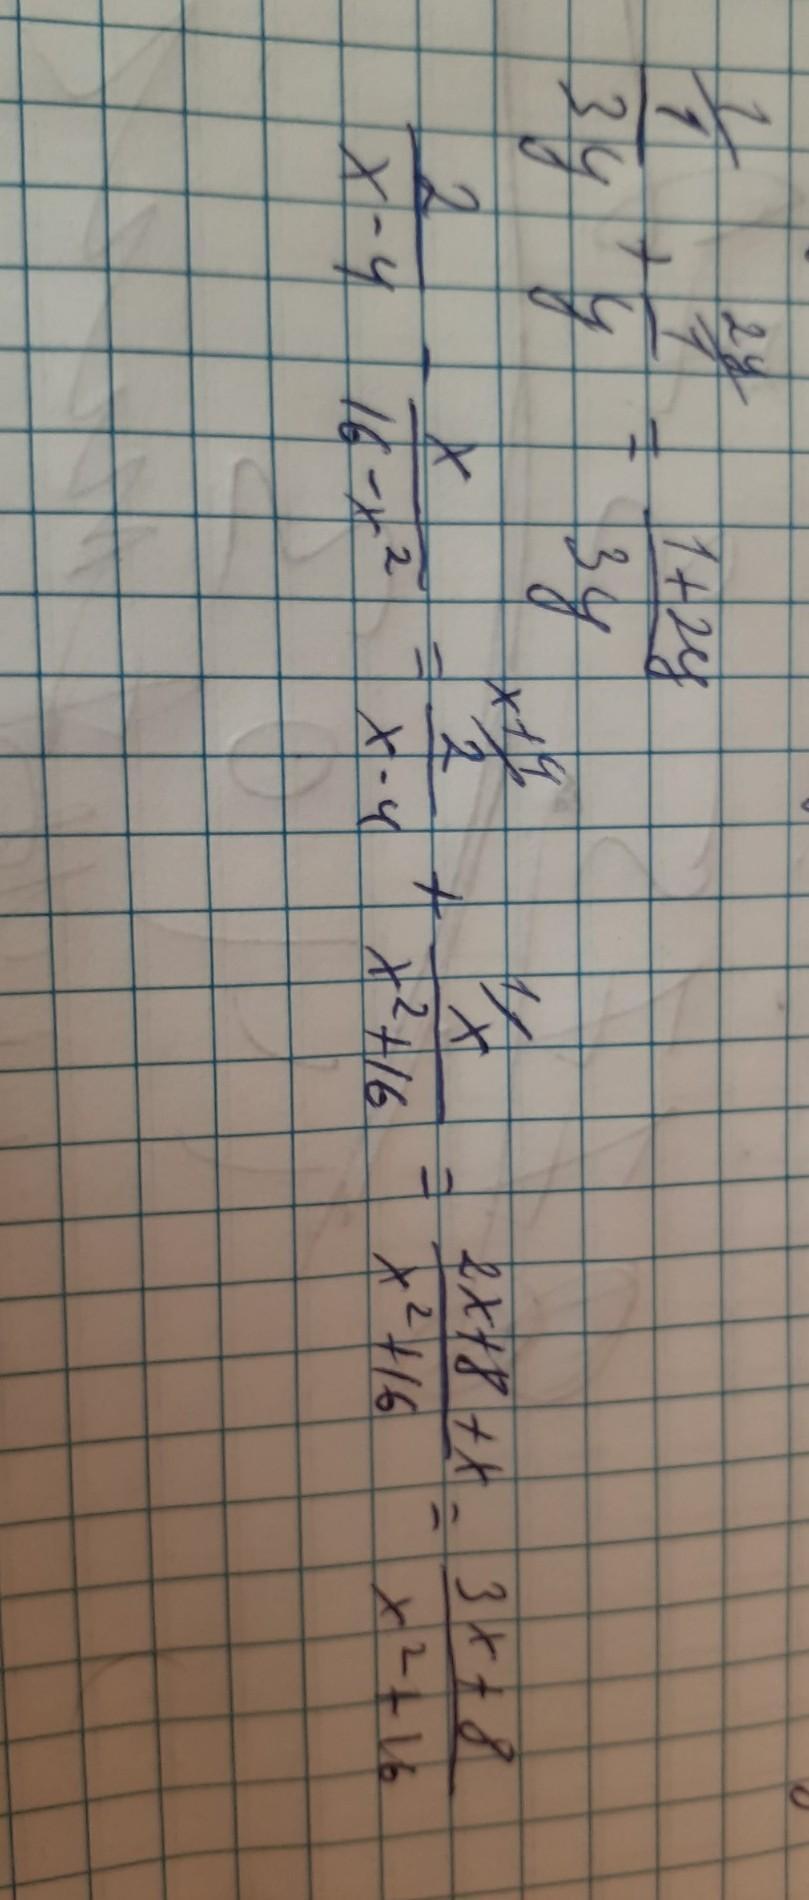 1/ 1/3y + 2y/ 1/y = (1+2y)/3y
2/(x-4) - x/(16-x²) = x+4/ 2/(x-4) + 1/ x/(x²+16) = (2x+8+x)/(x²+16) = (3x+8)/(x²+16)